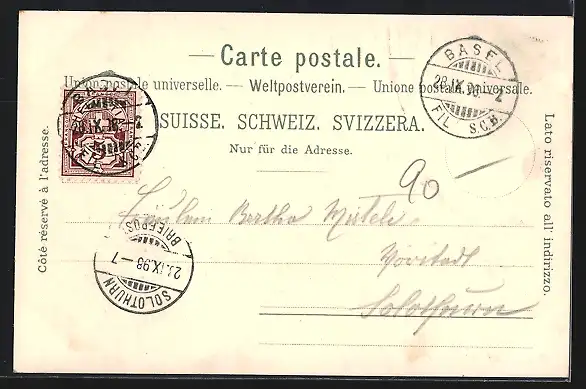 Carte postale.
Union postale universelle. — Weltpostverein. — Unione postale universale.
SUISSE. SCHWEIZ. SVIZZERA.
Nur für die Adresse.
Côté réservé à l'adresse.
Lato riservato all' indirizzo.
BASEL
FIL S.C.B.
90
Fräulein Bertha
Vorstadt
Solothurn
BRIEFPOST
IX.98 — 7
SOLOTHURN